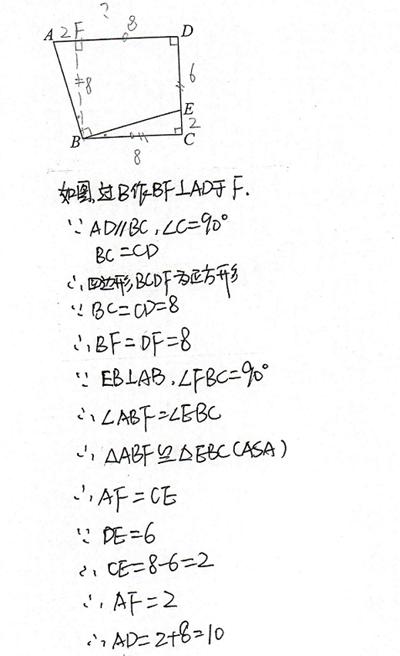 ?
A 2 F 8 D
8 6
E
B 2
C
8
如图,过B作BF⊥AD于F.
∵ AD∥BC,∠C=90°
BC=CD
∴四边形BCDF为正方形
∵ BC=CD=8
∴BF=DF=8
∵ EB⊥AB,∠FBC=90°
∴∠ABF=∠EBC
∴△ABF≌△EBC(ASA)
∴AF=CE
∵ DE=6
∴CE=8-6=2
∴AF=2
∴AD=2+8=10